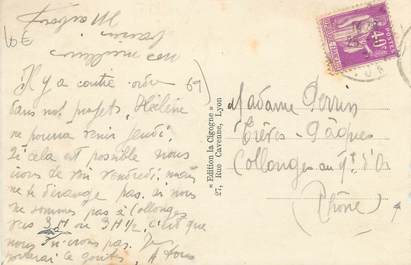 Il y a contre-ordre
dans nos projets, Hélène
ne pourra venir jeudi.
Si cela est possible nous
irons de soir vendredi, mais
ne te dérange pas. Si nous
ne sommes pas à Collonges
vers 3 H ou 3 H ½ c'est que
nous n'irons pas.
le goûter. A tous
nos meilleurs
69
"Edition la Cigogne"
27, Rue Cavenne, Lyon
Madame Perrin
Collonges au Mt d'Or
(Rhône)
40